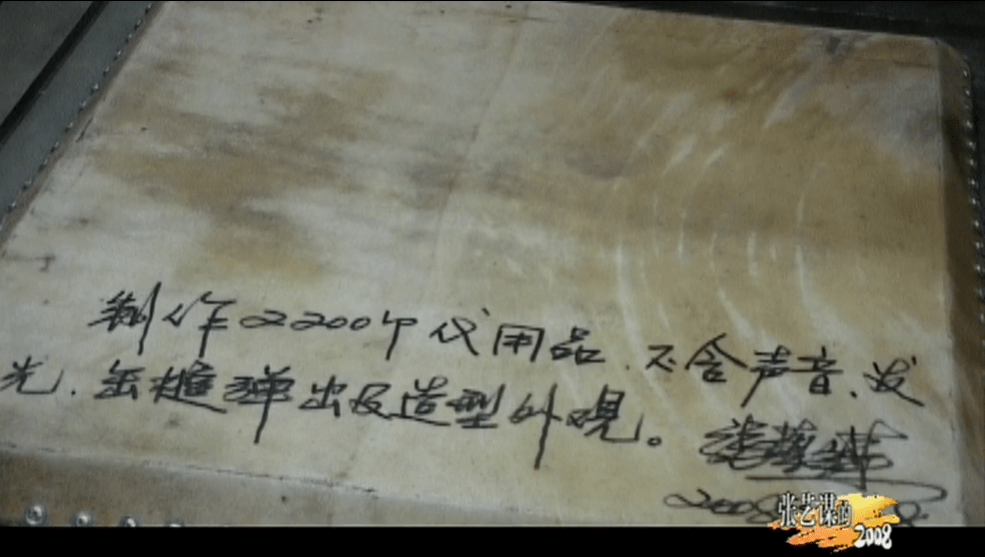 制作2200个代用品、不含声音、发
光、缶槌弹出及造型外观。
张艺谋
2008
张艺谋的
2008